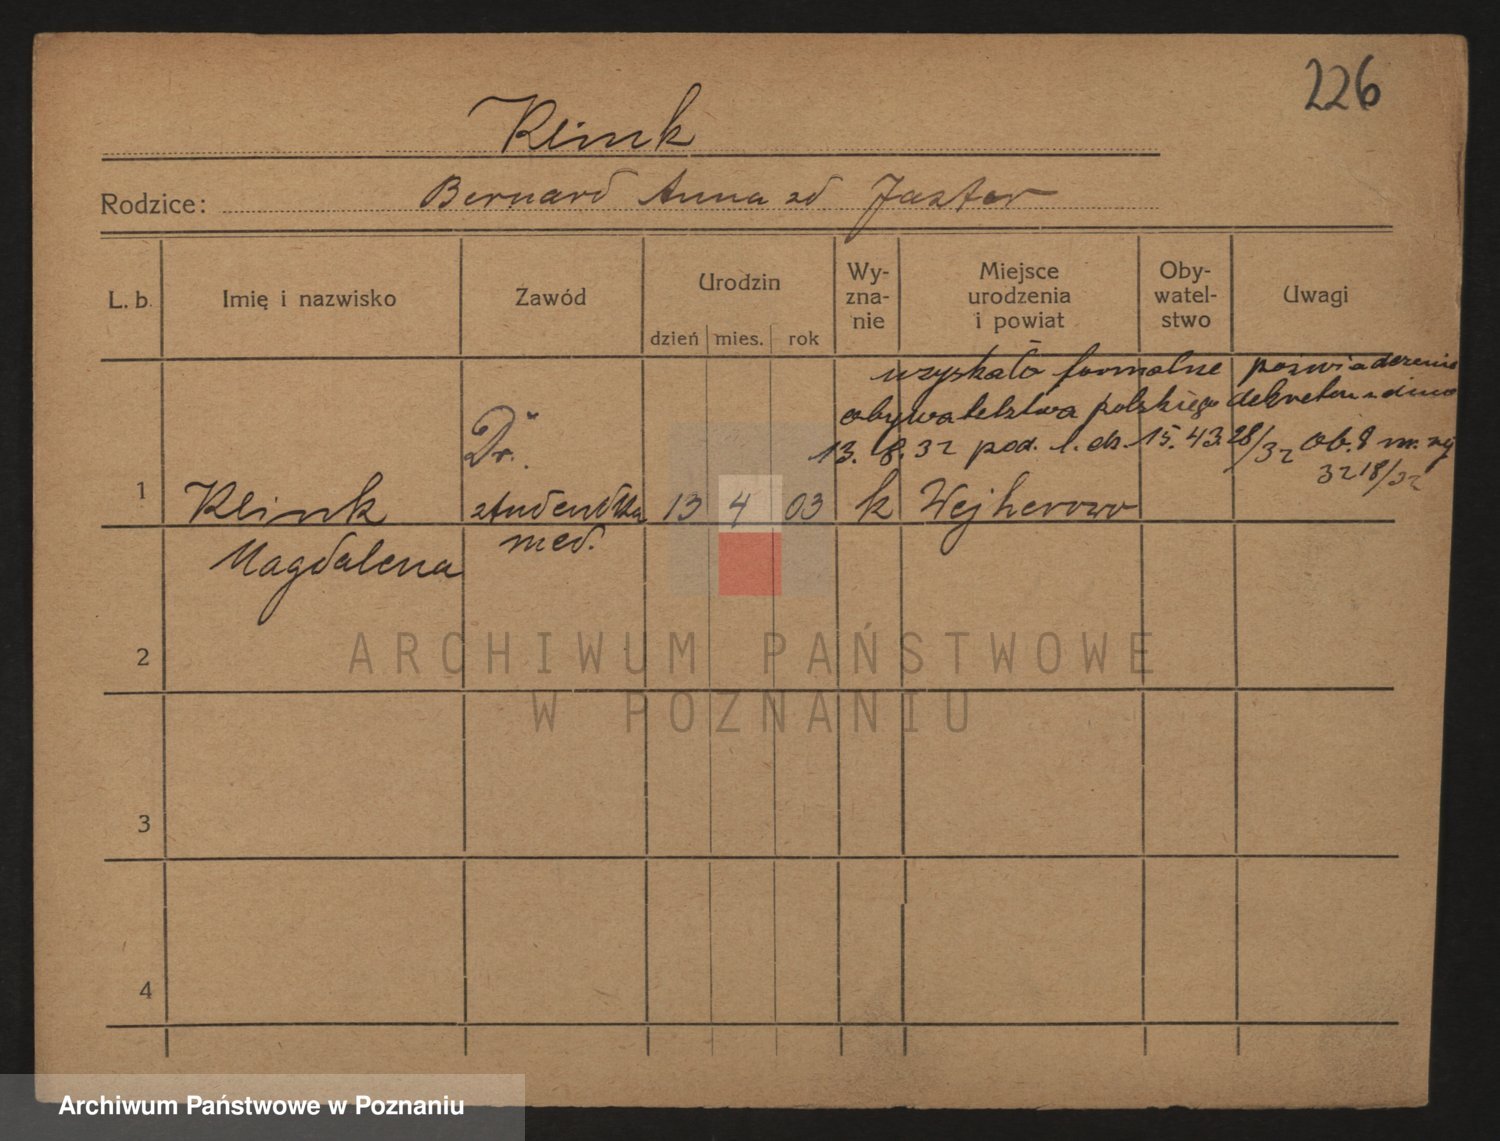 226
Klink
Rodzice: Bernard Anna zd Jaster
L. b. Imię i nazwisko Zawód Urodzin Wy-zna-nie Miejsce urodzenia i powiat Oby-watel-stwo Uwagi
dzień mies. rok
uzyskała formalne poświadczenie
obywatelstwa polskiego dekretem z dnia
13. 8. 32 pod. l. dz. 15. 43.28/32 ob. 8 nr.
3218/32
Dr.
1 Klink studentka 13 4 03 k Wejherowo
Magdalena med.
2
3
4
ARCHIWUM PAŃSTWOWE
W POZNANIU
Archiwum Państwowe w Poznaniu